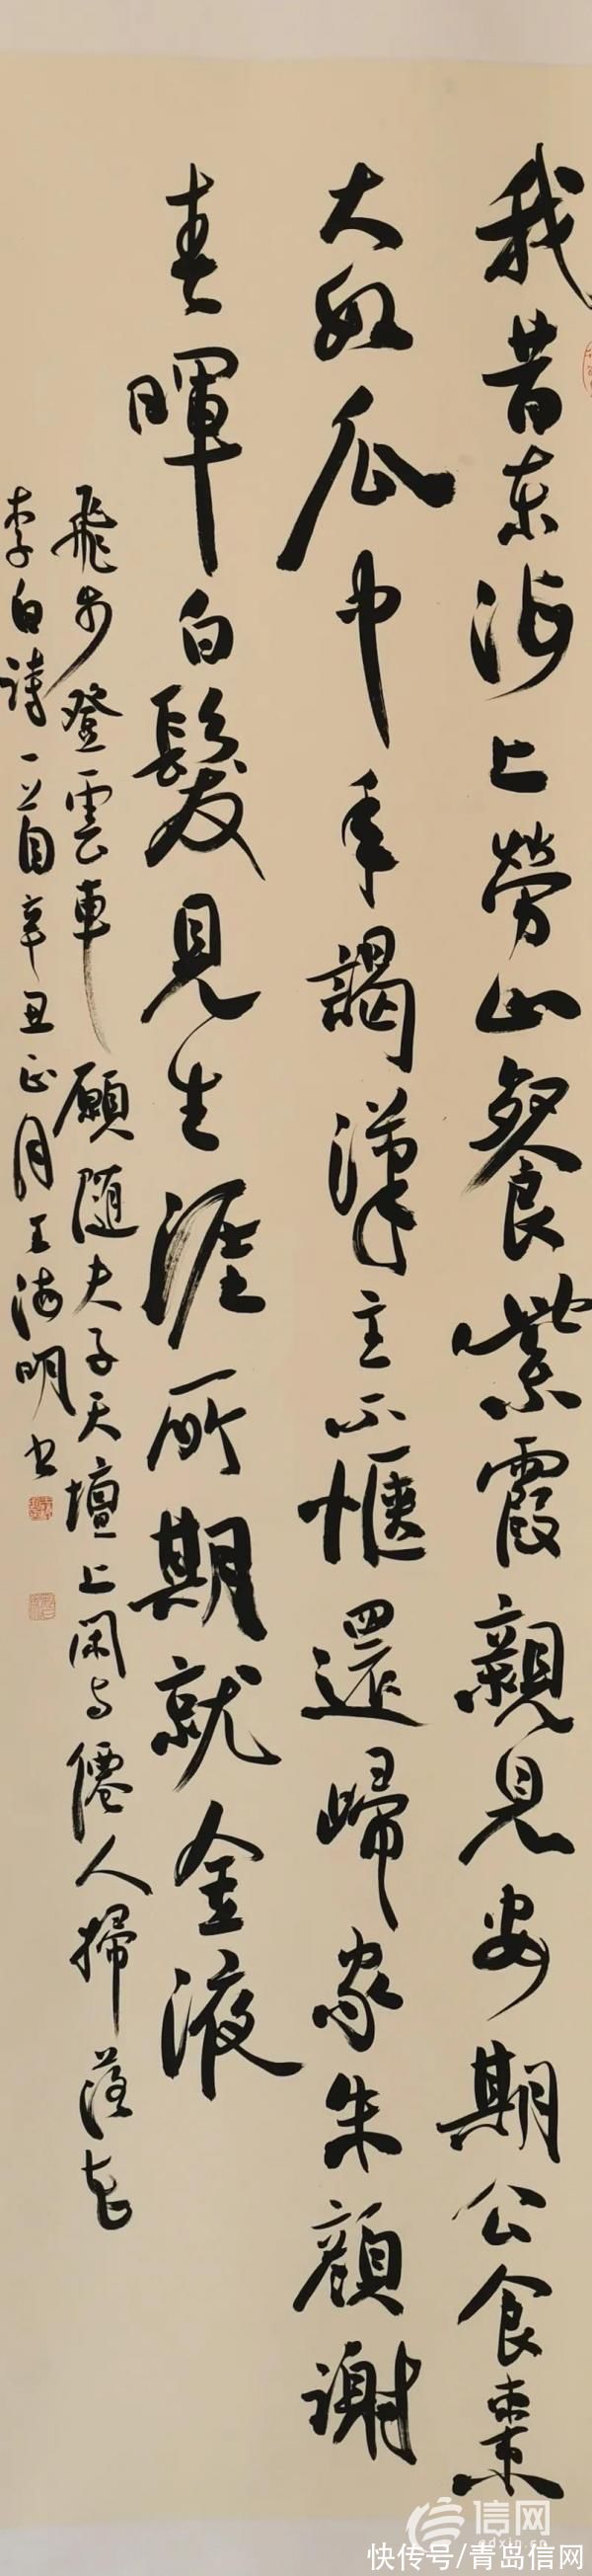 我昔東海上勞山餐紫霞親見安期公食棗
大如瓜中年謁漢主不愜還歸家朱顏謝
春暉白髮見生涯所期就金液
飛步登雲車願随夫子天壇上閑与僊人掃落花
李白詩一首辛丑正月王海明书
信网
qdxin.cn
快传号/青岛信网